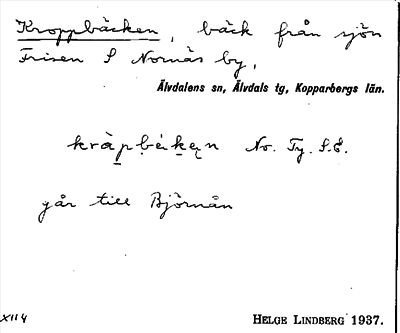 Kroppbäcken, bäck från sjön
Frisen S Nornäs by,
Älvdalens sn, Älvdals tg, Kopparbergs län.
No. Ty. S.E.
går till Björnån
XII 4
HELGE LINDBERG 1937.